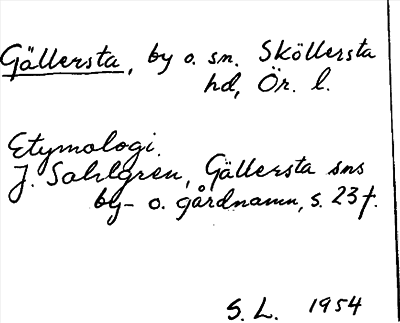 Gällersta, by o. sn. Sköllersta
hd, Ör. l.
Etymologi.
J. Sahlgren, Gällersta sns
by- o. gårdnamn, s. 23 f.
S. L. 1954